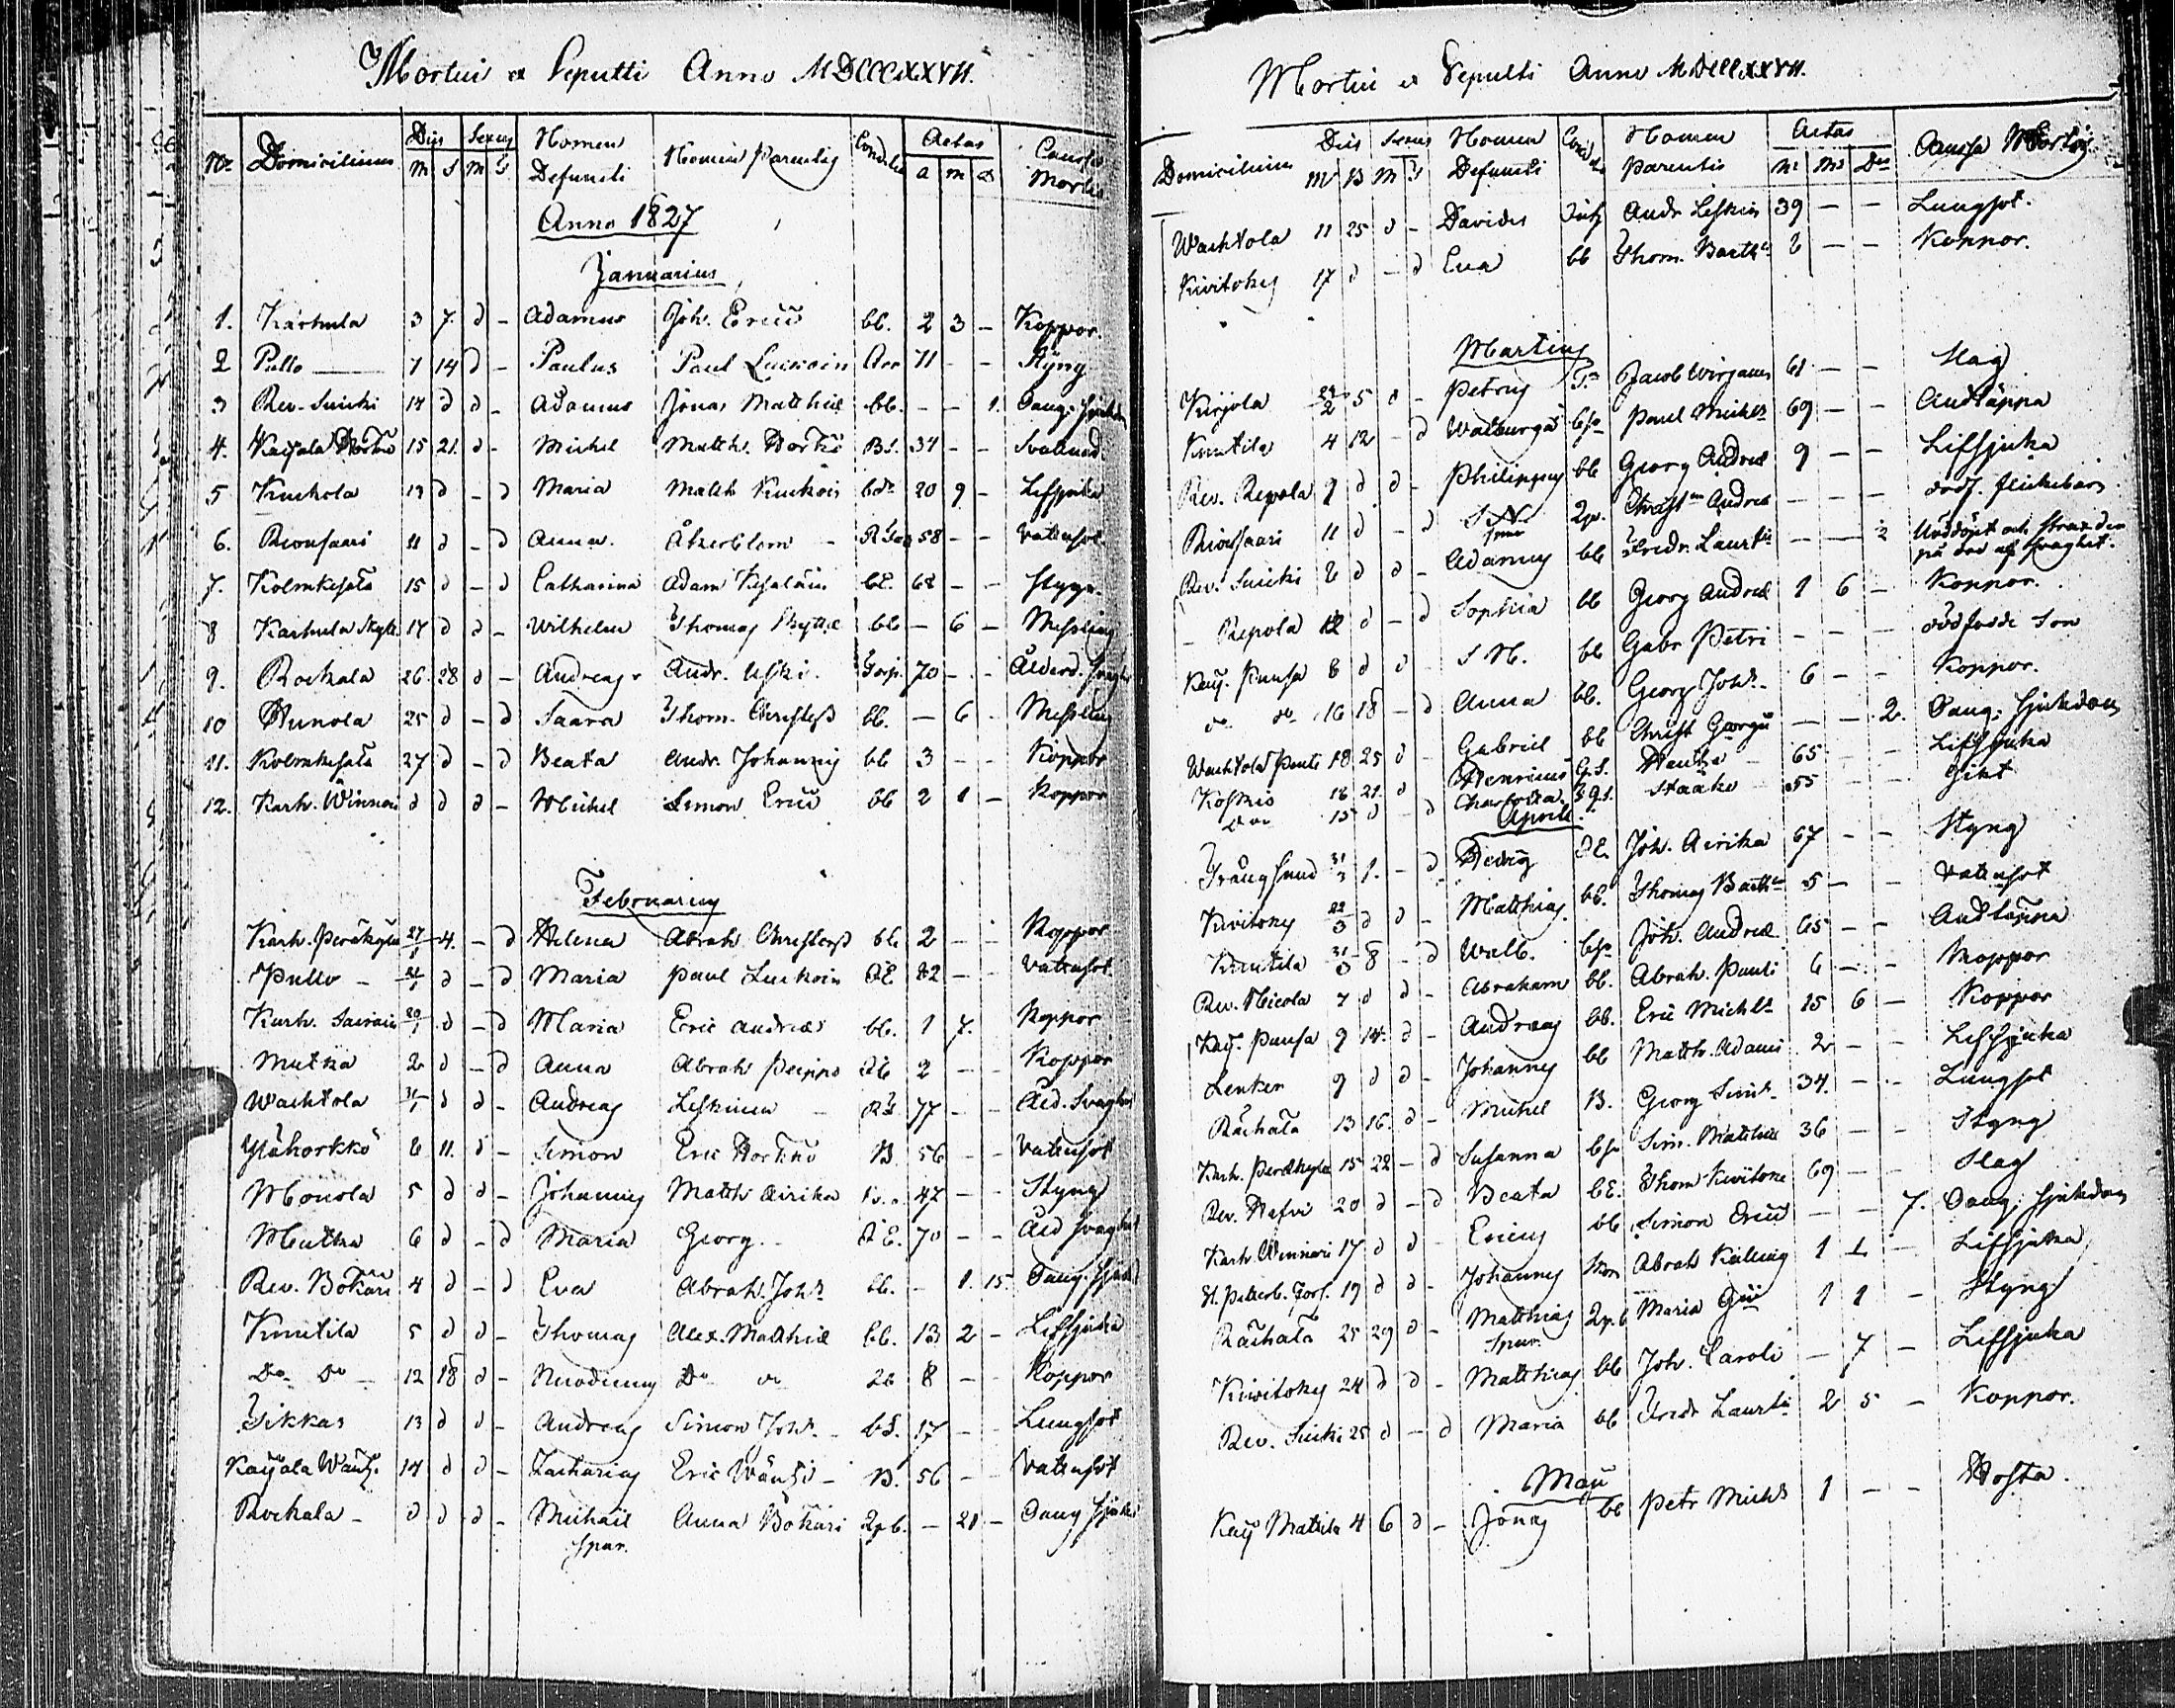 Mortui et Sepulti Anno MDCCCXXVII.
No Domicilium Dies Sexus Nomen Nomen Parentis Conditio Aetas Causa
M S M F Defuncti a m d Mortis
Anno 1827
Januarius
1. Karhula 3 7 d - Adamus Joh. Erici bb. 2 3 - Koppor.
2 Pullo 7 14 d - Paulus Paul Luckoin 71 - - Styng
3 Rev. Suicki 14 d d - Adamus Jonas Matthiæ bb. - - 1. Oang. sjukdom
4. Kaijala 15 21. d - Michel Matth. B.S. 34 - -
5 Kuckola 19 d - d Maria Matth Kuckois 20 9 - Lifsjuka
6. Rionsaari 11 d - d Anna. Åkerblom - 58 - - Vatensot
7. Kolmkesälä 15 d - d Catharina Adam Kesäläin bE. 68 - - Styng.
8 Karhula Skytt. 17 d d - Wilhelm Thomas Skyttæ bb - 6 - Messling
9. Rockala 26. 28 d - Andreas Andr. Uski. 70 - - Ålderd. svaghet
10 Hunola 25 d - d Saara Thom. bb. - 6 - Messling
11. Kolmkesälä 27 d - d Beata Andr. Johannis bb 3 - - Koppor
12. Karh. Winnari d d d - Michel Simon Erici bb 2 1 - Koppor
Februarius
Karh. Peräkylä 27/1 4. - d Helena Abrah. bb 2 - - Koppor
Pullo - d - d Maria Paul Luckoin dE. 82 - - Vatensot
Karh. d - d Maria Eric Andreæ bb. 1 7. Koppor
Mutka 2 d - d Anna Abrah Peippo 2 - - Koppor
Wachtola 31/1 d d - Andreas Leskinen - 77 - - Åld. Svaghet
Yläkorkkö 6 11. d - Simon Eric B. 56 - - Vatensot
Monola 5 d d - Johannes Matth Airika 47 - - Styng
Mutka 6 d - d Maria Georg. dE. 70 - - Åld svaghet
Rev. Bökäri 4 d - d Eva Abrah. Johs bb. - 1. 15. Oang. sjukd
Knutila 5 d d - Thomas Alex. Matthiæ bb. 13 2 - Lifsjuka
Do Do 12 18 d - Do do 8 - - Koppor
Tikkas 13 d d - Andreas Simon Johs - bS. 17 - - Lungsot
Kaijala 14 d d - Zacharias Eric - B. 56 - - Vatensot
Rockala - d d d - Michail Anna Bökäri 2pb. - 21 - Oang sjukd
spur.
Mortui et Sepulti Anno MDCCCXXVII.
Domicilium Dies Sexus Nomen Nomen Aetas Causa Mortis
M B M F Defuncti Parentis
Wachtola 11 25 d - Davides Andr. Leskin 39 - - Lungsot.
Kivitokey 17 d - d Eva bb Thom. - - Koppor.
Martius
Kirjola 5 d - Petrus Jacob Wirjanen 61 - - Slag
Knutila 4 12 - d Walburga Paul Michls 69 - - Andtäppa
Rev. Repola 9 d d - Philippus bb Georg Andreæ 9 - - Lifsjuka
Rionsaari 11 d - d S N 2p. Andreæ - - -
spur
Rev. Suicki d d - Adamus bb Fredr. Laurtii - - 2 Nöddöpt och
Repola 12 d - d Sophia bb Georg Andreæ 1 6 - Koppor.
Kaij. Punsa 8 d d - S N. bb Gabr Petri - - - dödfödde Son
do do 16 18 - d Anna bb. Georg Johs - 6 - - Koppor.
Wachtola Penti 18 25 d - Gabriel bb Christ Georgii - - 2. Oang. sjukdom
Koskis 18 21. d Henricus G.S. 65 - - Lifsjuka
Do 15 d - d Charlotta Stååke 55 Gikt
Aprilis
Trångsund 31/3 1. - d Hedvig dE. Joh. Airika 67 - - Styng
Kivitokey 22/3 d d - Matthias bb. Thomas 5 - - Vatensot
Knutila 31/3 8 - d Walb. Joh. Andreæ 65 - - Andtäppa
Rev. Nicola 7 d d - Abraham bb. Abrah. Pauli 6 - - Koppor
Kaij. Punsa 9 14. d - Andreas bb. Eric Michls 15 6 - Koppor
Lenken 9 d d - Johannes bb Matth. Adami 2 - - Lifsjuka
Rächälä 13 16. d - Michel B. Georg Sims 34. - - Lungsot
Karh. Peräkylä 15 22 - d Susanna Sim. Matthiæ 36 - - Styng
Rev. Hafvi 20 d - d Beata bE. Thom 69 - - Slag
Karh. Winnari 17 d d - Ericus bb Simon Erici - - 7. Oang. sjukdom
St. Peterb. 19 d d - Johannes Abrah 1 1 - Lifsjuka
Rächälä 25 29 d - Matthias 2p.b Maria 1 1 - Styng
spur.
Kivitokey 24 d d - Matthias bb Joh. Caroli - 7 - Lifsjuka
Rev. Suicki 25 d - d Maria bb Fredr Laurtii 2 5 - Koppor.
Maii
Kaij Mattila 4 6 d - Jonas bb Petr Michls 1 - - Hosta.